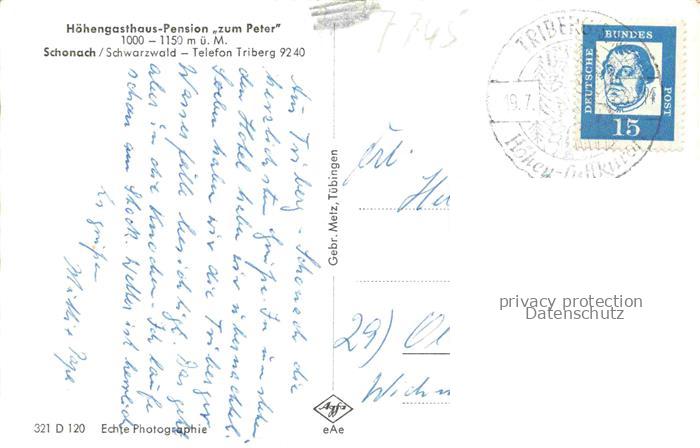 Höhengasthaus-Pension „zum Peter"
1000 – 1150 m ü. M.
Schonach / Schwarzwald – Telefon Triberg 92 40
7745
TRIBERG
19.7.
Höhen-Luftkurort
DEUTSCHE BUNDES POST
15
Aus Triberg - Schonach die
herzlichsten Grüße. In umstehen
den Hotel haben wir übernachtet.
Soeben haben wir die Triberger
Wasserfälle besichtigt. Das geht
aber in die Knochen. Ich laufe
schon am Stock. Wetter ist herrlich
Es grüßen
Gebr. Metz, Tübingen
29)
privacy protection
Datenschutz
Agfa
eAe
321 D 120 Echte Photographie